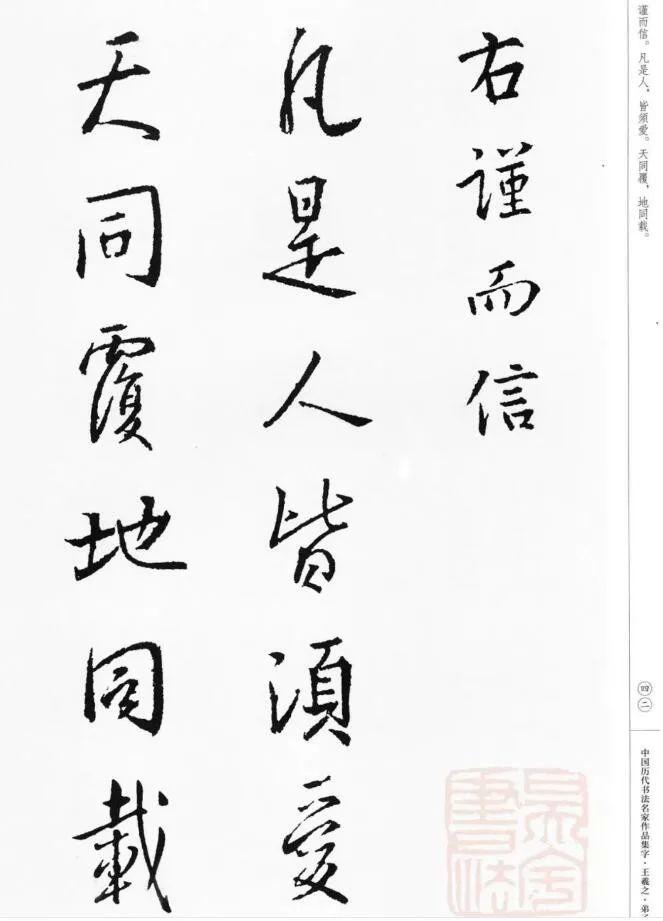 右謹而信
凡是人皆須愛
天同覆地同載
谨而信。凡是人，皆須爱。天同覆，地同载。
四二
中国历代书法名家作品集字·王羲之·弟